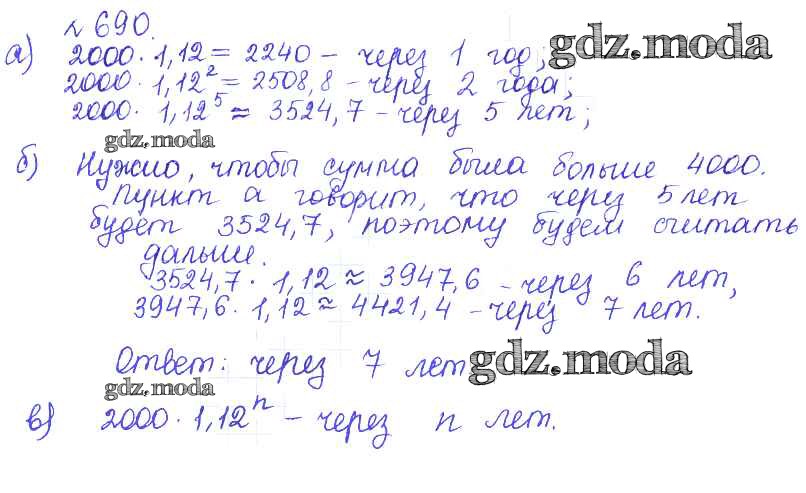 № 690.
а) 2000 · 1,12 = 2240 – через 1 год; gdz.moda
2000 · 1,12² = 2508,8 – через 2 года;
2000 · 1,12⁵ ≈ 3524,7 – через 5 лет;
gdz.moda
б) Нужно, чтобы сумма была больше 4000.
Пункт а говорит, что через 5 лет
будет 3524,7, поэтому будем считать
дальше.
3524,7 · 1,12 ≈ 3947,6 – через 6 лет,
3947,6 · 1,12 ≈ 4421,4 – через 7 лет.
Ответ: через 7 лет gdz.moda
gdz.moda
в) 2000 · 1,12ⁿ – через n лет.